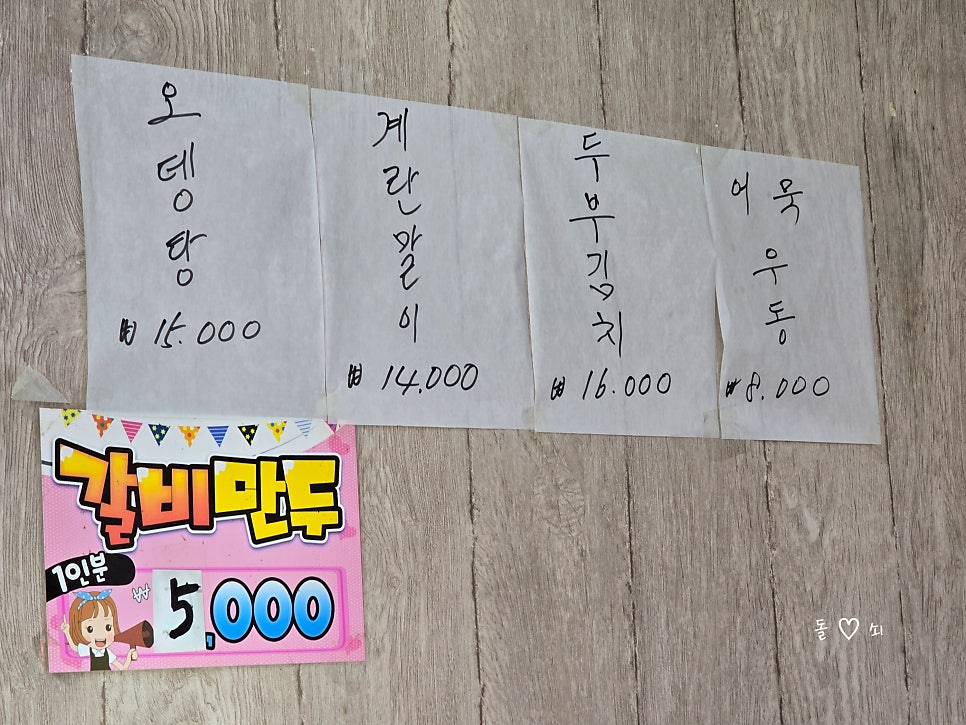 오뎅탕
₩ 15.000
계란말이
₩ 14.000
두부김치
₩ 16.000
어묵
우동
₩ 8.000
갈비만두
1인분
₩ 5,000
돌♡쇠